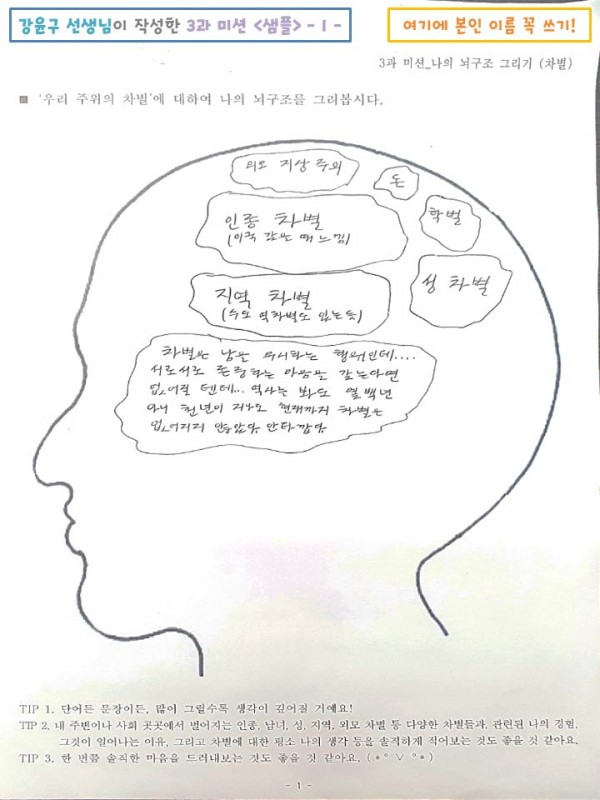 강윤구 선생님이 작성한 3과 미션 <샘플> - 1 -
여기에 본인 이름 꼭 쓰기!
3과 미션_나의 뇌구조 그리기 (차별)
■ '우리 주위의 차별'에 대하여 나의 뇌구조를 그려봅시다.
외모 지상 주의
돈
인종 차별
(미국 갔는 때 느낌)
학벌
지역 차별
(수도 역차별도 있는듯)
성 차별
차별은 남을 무시하는 행위인데....
서로서로 존중하는 마음을 갖는다면
없어질 텐데... 역사를 봐도 몇백년
아니 천년이 지나도 현재까지 차별은
없어지지 않았다. 안타깝다.
TIP 1. 단어든 문장이든, 많이 그릴수록 생각이 깊어질 거예요!
TIP 2. 내 주변이나 사회 곳곳에서 벌어지는 인종, 남녀, 성, 지역, 외모 차별 등 다양한 차별들과, 관련된 나의 경험,
그것이 일어나는 이유, 그리고 차별에 대한 평소 나의 생각 등을 솔직하게 적어보는 것도 좋을 것 같아요.
TIP 3. 한 번쯤 솔직한 마음을 드러내보는 것도 좋을 것 같아요. (*° ∨ °*)
- 1 -